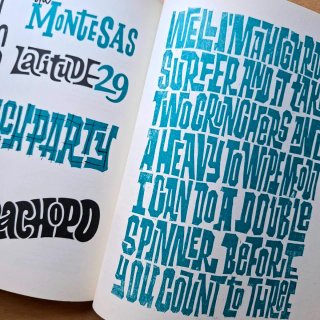 MONTESAS
LATITUDE 29
CH PARTY
ACHOPO
WELL I'M A HIGH RO
SURFER AND IT TAK
TWO CRONCHERS AND
A HEAVY TO WIPE M OUT
I CAN DO A DOUBLE
SPINNER BEFORE
YOU COUNT TO THREE